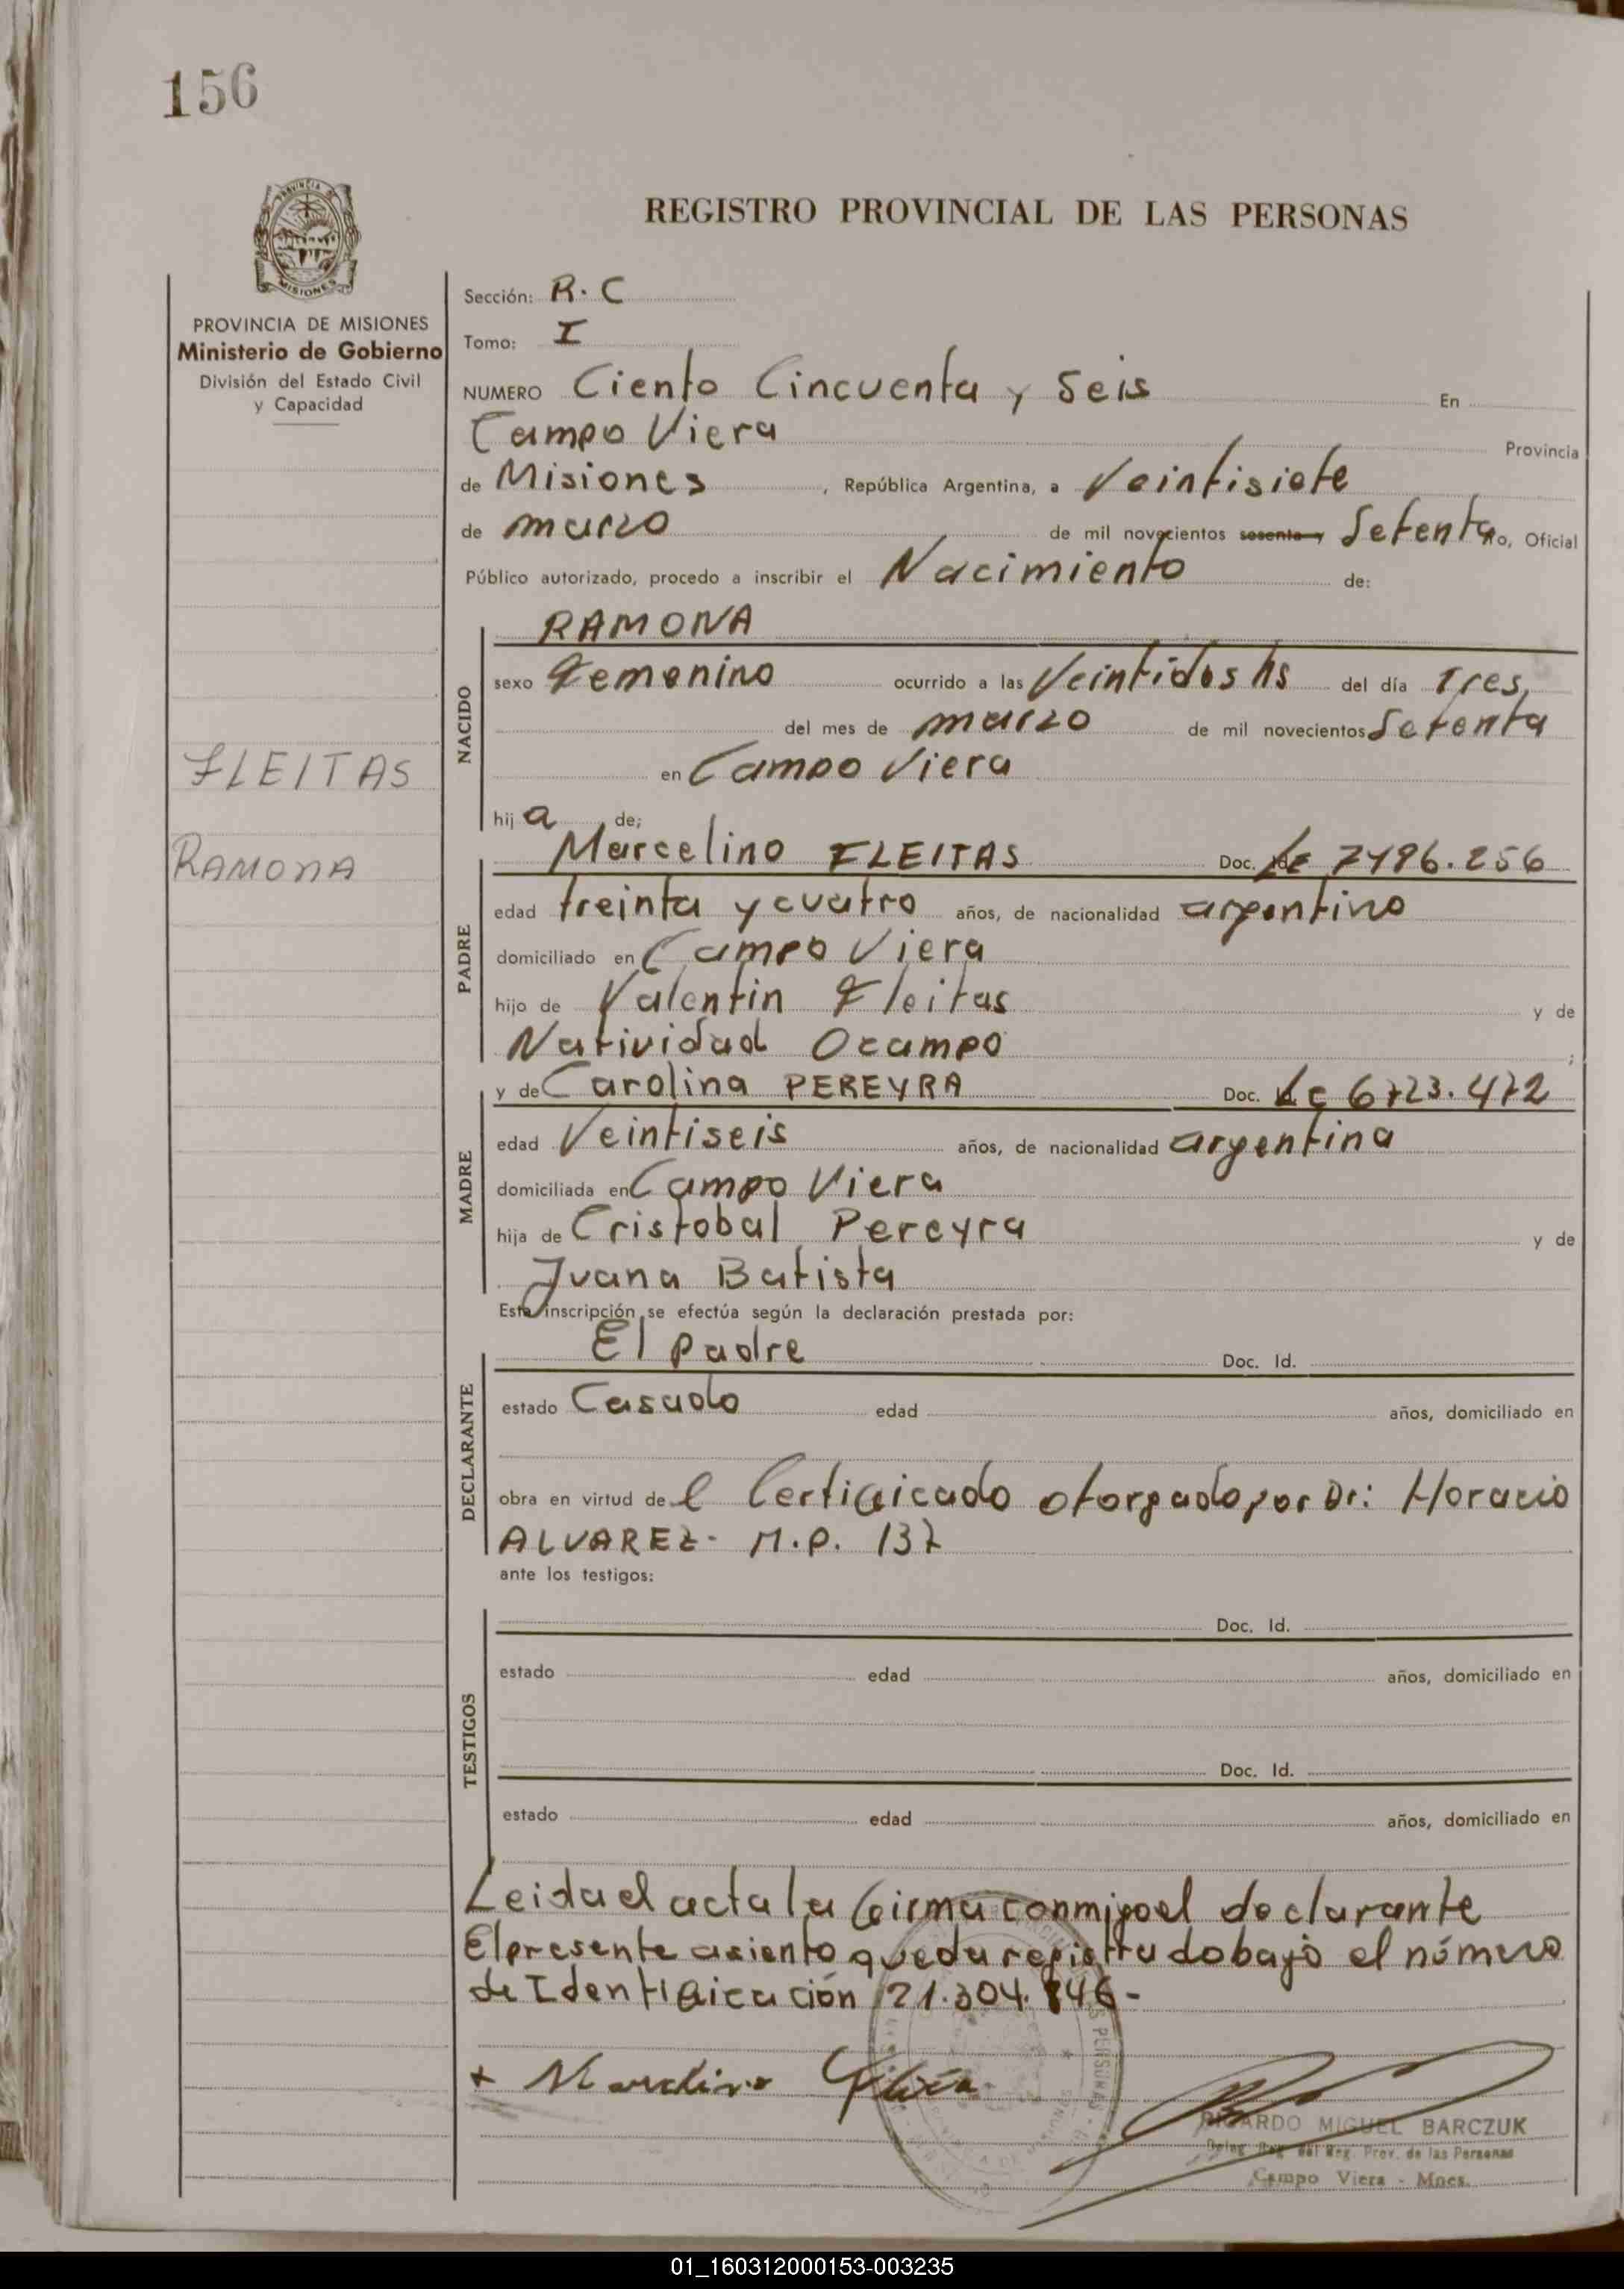 156
PROVINCIA DE
MISIONES
REGISTRO PROVINCIAL DE LAS PERSONAS
PROVINCIA DE MISIONES
Ministerio de Gobierno
División del Estado Civil
y Capacidad
FLEITAS
RAMONA
Sección: R.C
Tomo: I
NUMERO Ciento Cincuenta y Seis En
Campo Viera Provincia
de Misiones, República Argentina, a Veintisiete
de marzo de mil novecientos sesenta y Setenta, Oficial
Público autorizado, procedo a inscribir el Nacimiento de:
NACIDO
RAMONA
sexo Femenino ocurrido a las Veintidos hs del día Tres,
del mes de marzo de mil novecientos Setenta
en Campo Viera
hij a de;
PADRE
Marcelino FLEITAS Doc. 7496.256
edad treinta y cuatro años, de nacionalidad argentino
domiciliado en Campo Viera
hijo de Valentin Fleitas y de
Natividad Ocampo ;
MADRE
y de Carolina PEREYRA Doc. LC
edad Veintiseis años, de nacionalidad argentina
domiciliada en Campo Viera
hija de Cristobal Pereyra y de
Juana Batista
Esta inscripción se efectúa según la declaración prestada por:
DECLARANTE
El padre Doc. Id.
estado Casado edad años, domiciliado en
obra en virtud de l Certificado otorgado por Dr: Horacio
ALVAREZ - M.P. 137
ante los testigos:
TESTIGOS
Doc. Id.
estado edad años, domiciliado en
Doc. Id.
estado edad años, domiciliado en
Leida el acta la firma conmigo el declarante
El presente asiento queda registrado bajo el número
de Identificación 21.304.846-
RICARDO MIGUEL BARCZUK
Reg. Prov. de las Personas
Campo Viera - Mnes.
01_160312000153-003235